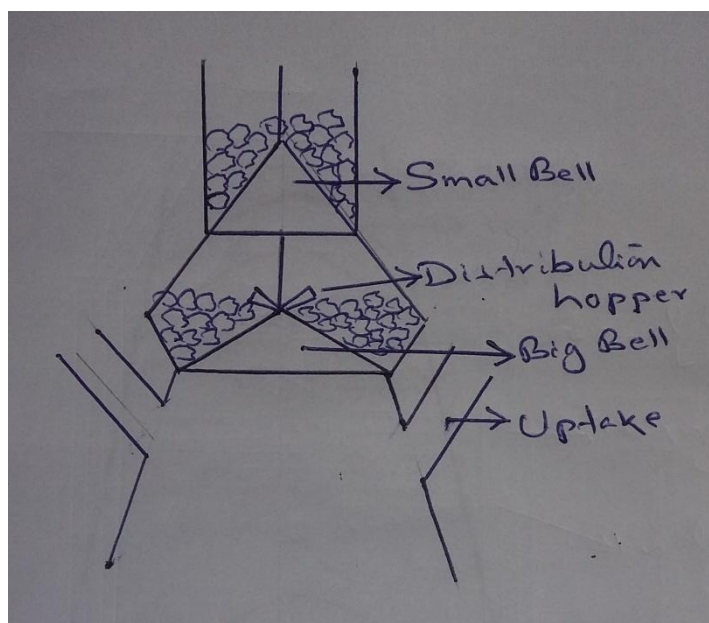 Small Bell
Distribution
hopper
Big Bell
Uptake